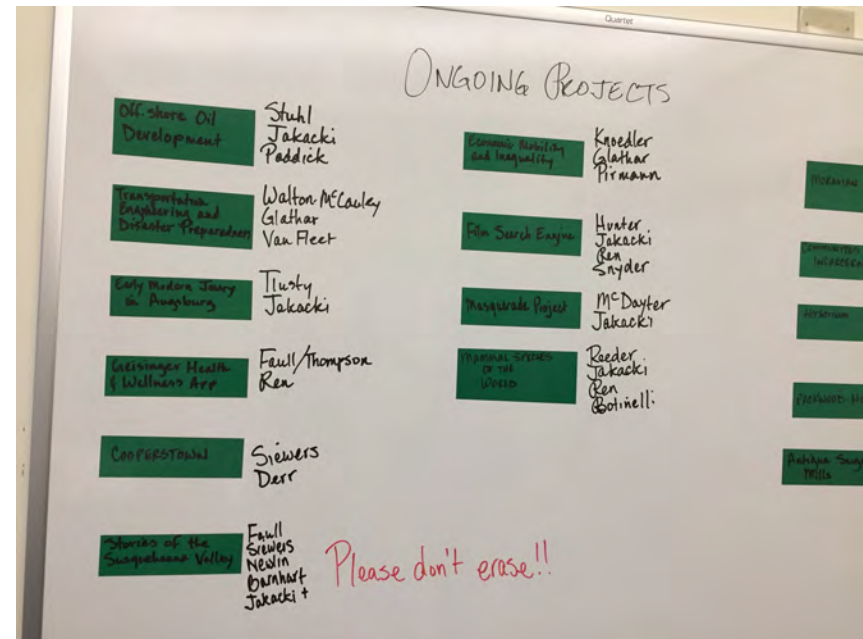 Quartet
ONGOING PROJECTS
Off-shore Oil
Development
Stuhl
Jakacki
Paddick
Transportation
Engineering and
Disaster Preparedness
Walton-McCauley
Glathar
Van Fleet
Early Modern Jewry
in Augsburg
Tlusty
Jakacki
Geisinger Health
& Wellness App
Faull/Thompson
Ren
COOPERSTOWN
Siewers
Derr
Stories of the
Susquehanna Valley
Faull
Siewers
Newlin
Barnhart
Jakacki +
Please don't erase!!
Economic Mobility
and Inequality
Knoedler
Glathar
Pirmann
Film Search Engine
Hunter
Jakacki
Ren
Snyder
Masquerade Project
McDayter
Jakacki
MAMMAL SPECIES
OF THE
WORLD
Reeder
Jakacki
Ren
Botinelli
MORAVIAN
COMMUNITIES
INCARCERA
PACKWOOD H
Antigua Sug
Mills